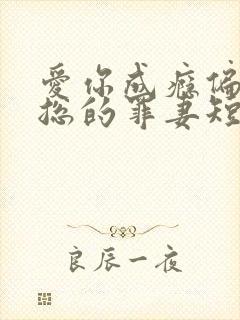 爱你成瘾偏
总的罪妻短
良辰一夜